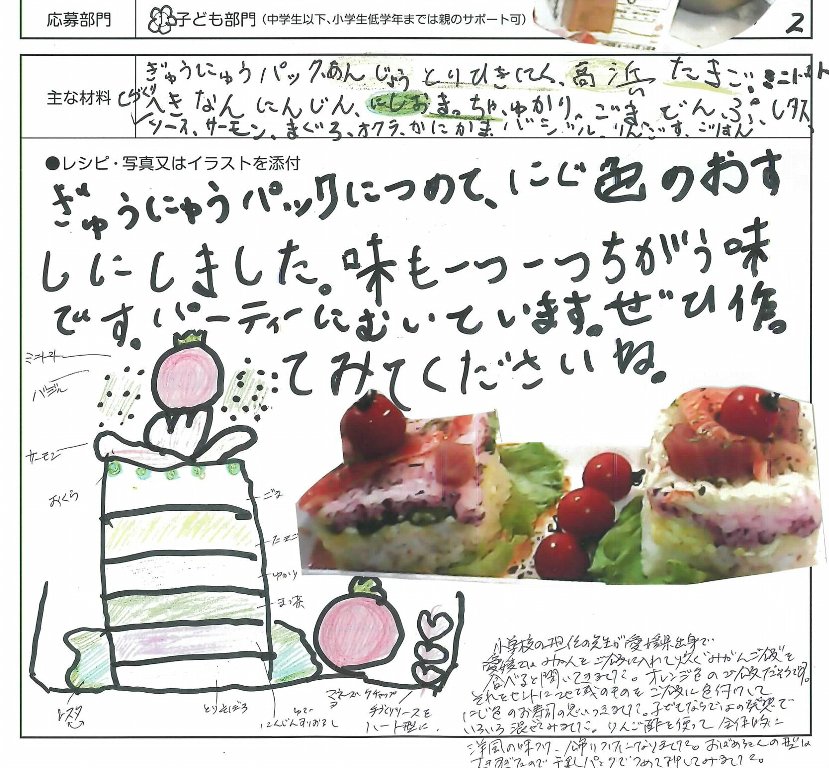 応募部門 ①子ども部門（中学生以下、小学生低学年までは親のサポート可） 2
主な材料
ぎゅうにゅうパック、あんじょうとりひきにん、高浜たまご、ミニトマト
へきなんにんじん、にしおまっちゃ、ゆかり、ごま、でんぷ、レタス、
ソース、サーモン、まぐろ、オクラ、かにかま、バジル、りんごす、ごはん
●レシピ・写真又はイラストを添付
ぎゅうにゅうパックにつめて、にじ色のおす
しにしました。味も一つ一つちがう味
です。パーティーにむいています。ぜひ作っ
てみてくださいね。
ミニトマト
バジル
サーモン
おくら
ごま
たまご
ゆかり
まっ茶
レタス
とりそぼろ
にんじんすりおろし
マヨネーズ ケチャップ
手づくりソースを
ハート型に。
小学校の担任の先生が愛媛県出身で
愛媛ではみかんをご飯に入れて炊く"みかんご飯"を
食べると聞いてきました。オレンジ色のご飯だそうです。
それをヒントに地域のものをご飯に色付けして
にじ色のお寿司を思いつきました。子どもならではの発想で
いろいろ混ぜてみました。りんご酢を使って全体的に
洋風の味つけ、飾りつけになりました。おばあちゃんの型は
大きすぎたので牛乳パックでつめて押してみました。